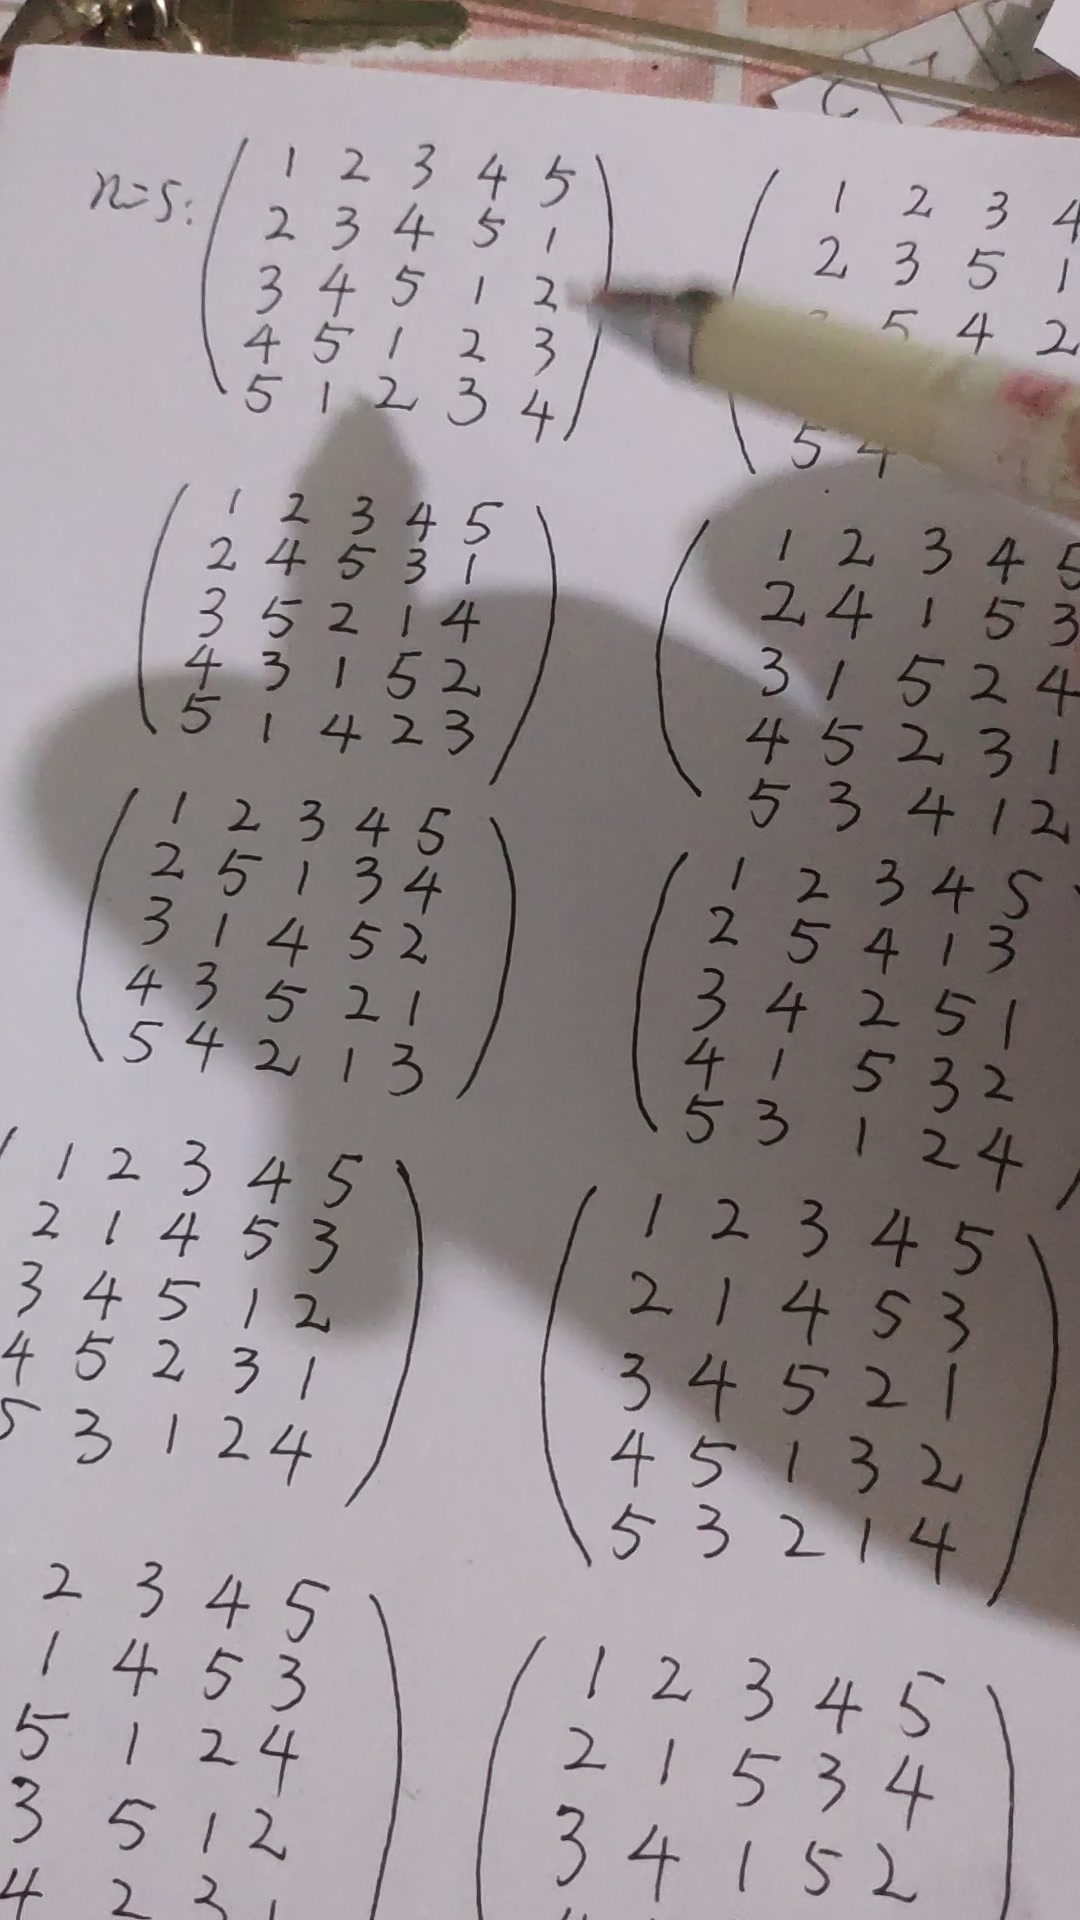 n=5:
1 2 3 4 5
2 3 4 5 1
3 4 5 1 2
4 5 1 2 3
5 1 2 3 4
1 2 3 4
2 3 5 1
5 4 2
5 4
1 2 3 4 5
2 4 5 3 1
3 5 2 1 4
4 3 1 5 2
5 1 4 2 3
1 2 3 4 5
2 4 1 5 3
3 1 5 2 4
4 5 2 3 1
5 3 4 1 2
1 2 3 4 5
2 5 1 3 4
3 1 4 5 2
4 3 5 2 1
5 4 2 1 3
1 2 3 4 5
2 5 4 1 3
3 4 2 5 1
4 1 5 3 2
5 3 1 2 4
1 2 3 4 5
2 1 4 5 3
3 4 5 1 2
4 5 2 3 1
5 3 1 2 4
1 2 3 4 5
2 1 4 5 3
3 4 5 2 1
4 5 1 3 2
5 3 2 1 4
2 3 4 5
1 4 5 3
5 1 2 4
3 5 1 2
4 2 3 1
1 2 3 4 5
2 1 5 3 4
3 4 1 5 2